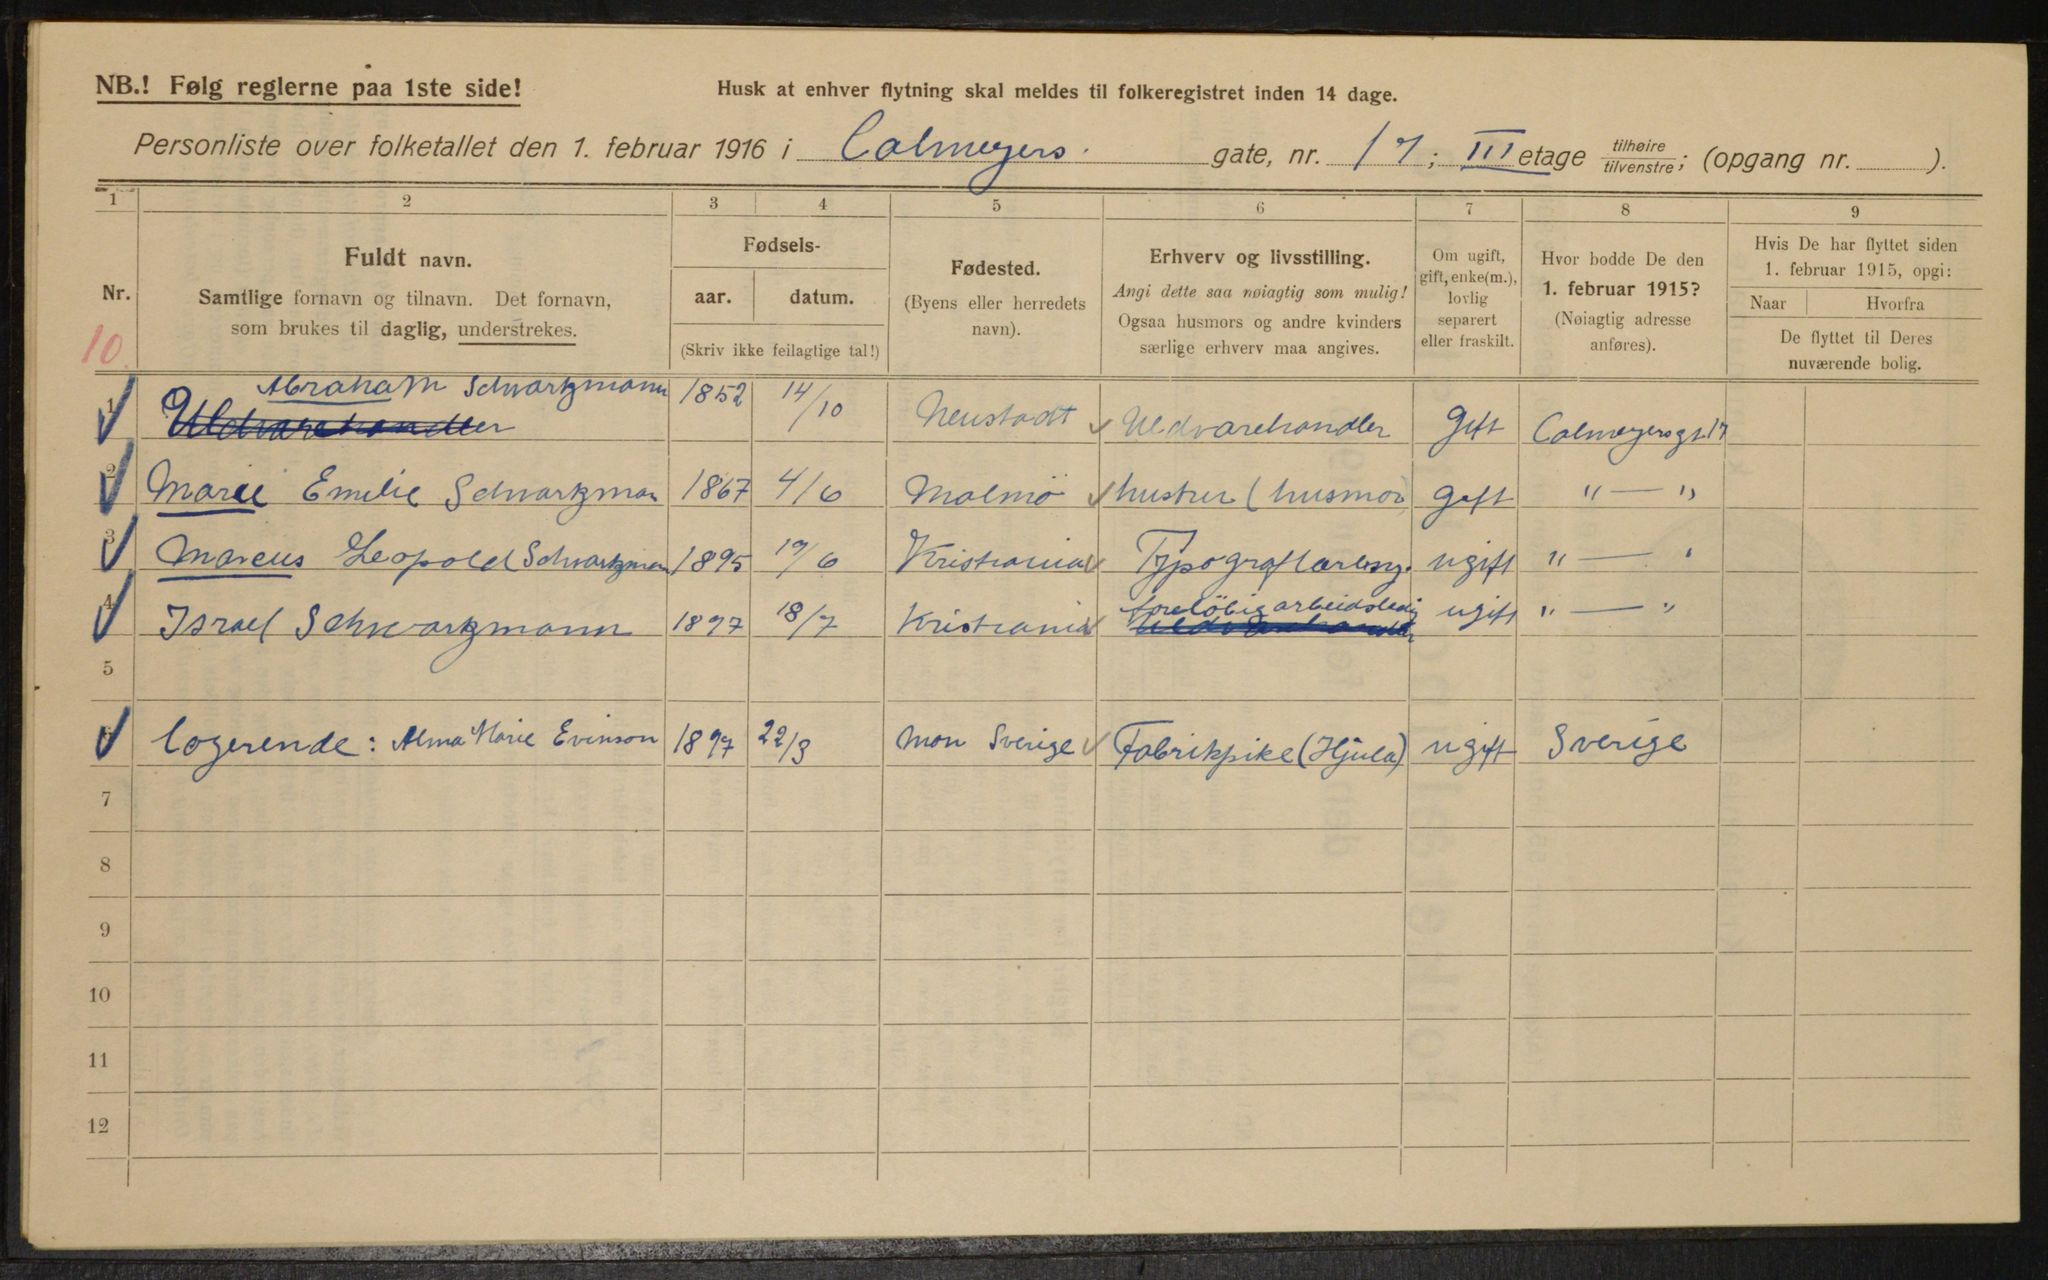 NB.! Følg reglerne paa 1ste side!
Husk at enhver flytning skal meldes til folkeregistret inden 14 dage.
Personliste over folketallet den 1. februar 1916 i Calmeyers gate, nr. 17; III etage tilhøire/tilvenstre; (opgang nr. ).
1 2 3 4 5 6 7 8 9
Nr.
10.
Fuldt navn.
Samtlige fornavn og tilnavn. Det fornavn,
som brukes til daglig, understrekes.
Fødsels-
aar. datum.
(Skriv ikke feilagtige tal!)
Fødested.
(Byens eller herredets
navn).
Erhverv og livsstilling.
Angi dette saa nøiagtig som mulig!
Ogsaa husmors og andre kvinders
særlige erhverv maa angives.
Om ugift,
gift, enke(m.),
lovlig
separert
eller fraskilt.
Hvor bodde De den
1. februar 1915?
(Nøiagtig adresse
anføres).
Hvis De har flyttet siden
1. februar 1915, opgi:
Naar Hvorfra
De flyttet til Deres
nuværende bolig.
Abraham Schwartzmann
1 Uldvarehandler 1852 14/10 Neustadt Uldvarehandler gift Calmeyersgt. 17
2 Marie Emilie Schvartzman 1867 4/6 Malmö hustru (husmor) gift " — "
3 Marcus Leopold Schvartzman 1895 19/6 Kristiania Typograflærling. ugift " — "
4 Israel Schwartzmann 1897 18/7 Kristiania forelöbig arbeidsledig ugift " — "
Uldvarehandler
5
6 logerende: Alma Marie Evinson 1897 22/3 Mon Sverige Fabrikpike (Hjula) ugift Sverige
7
8
9
10
11
12